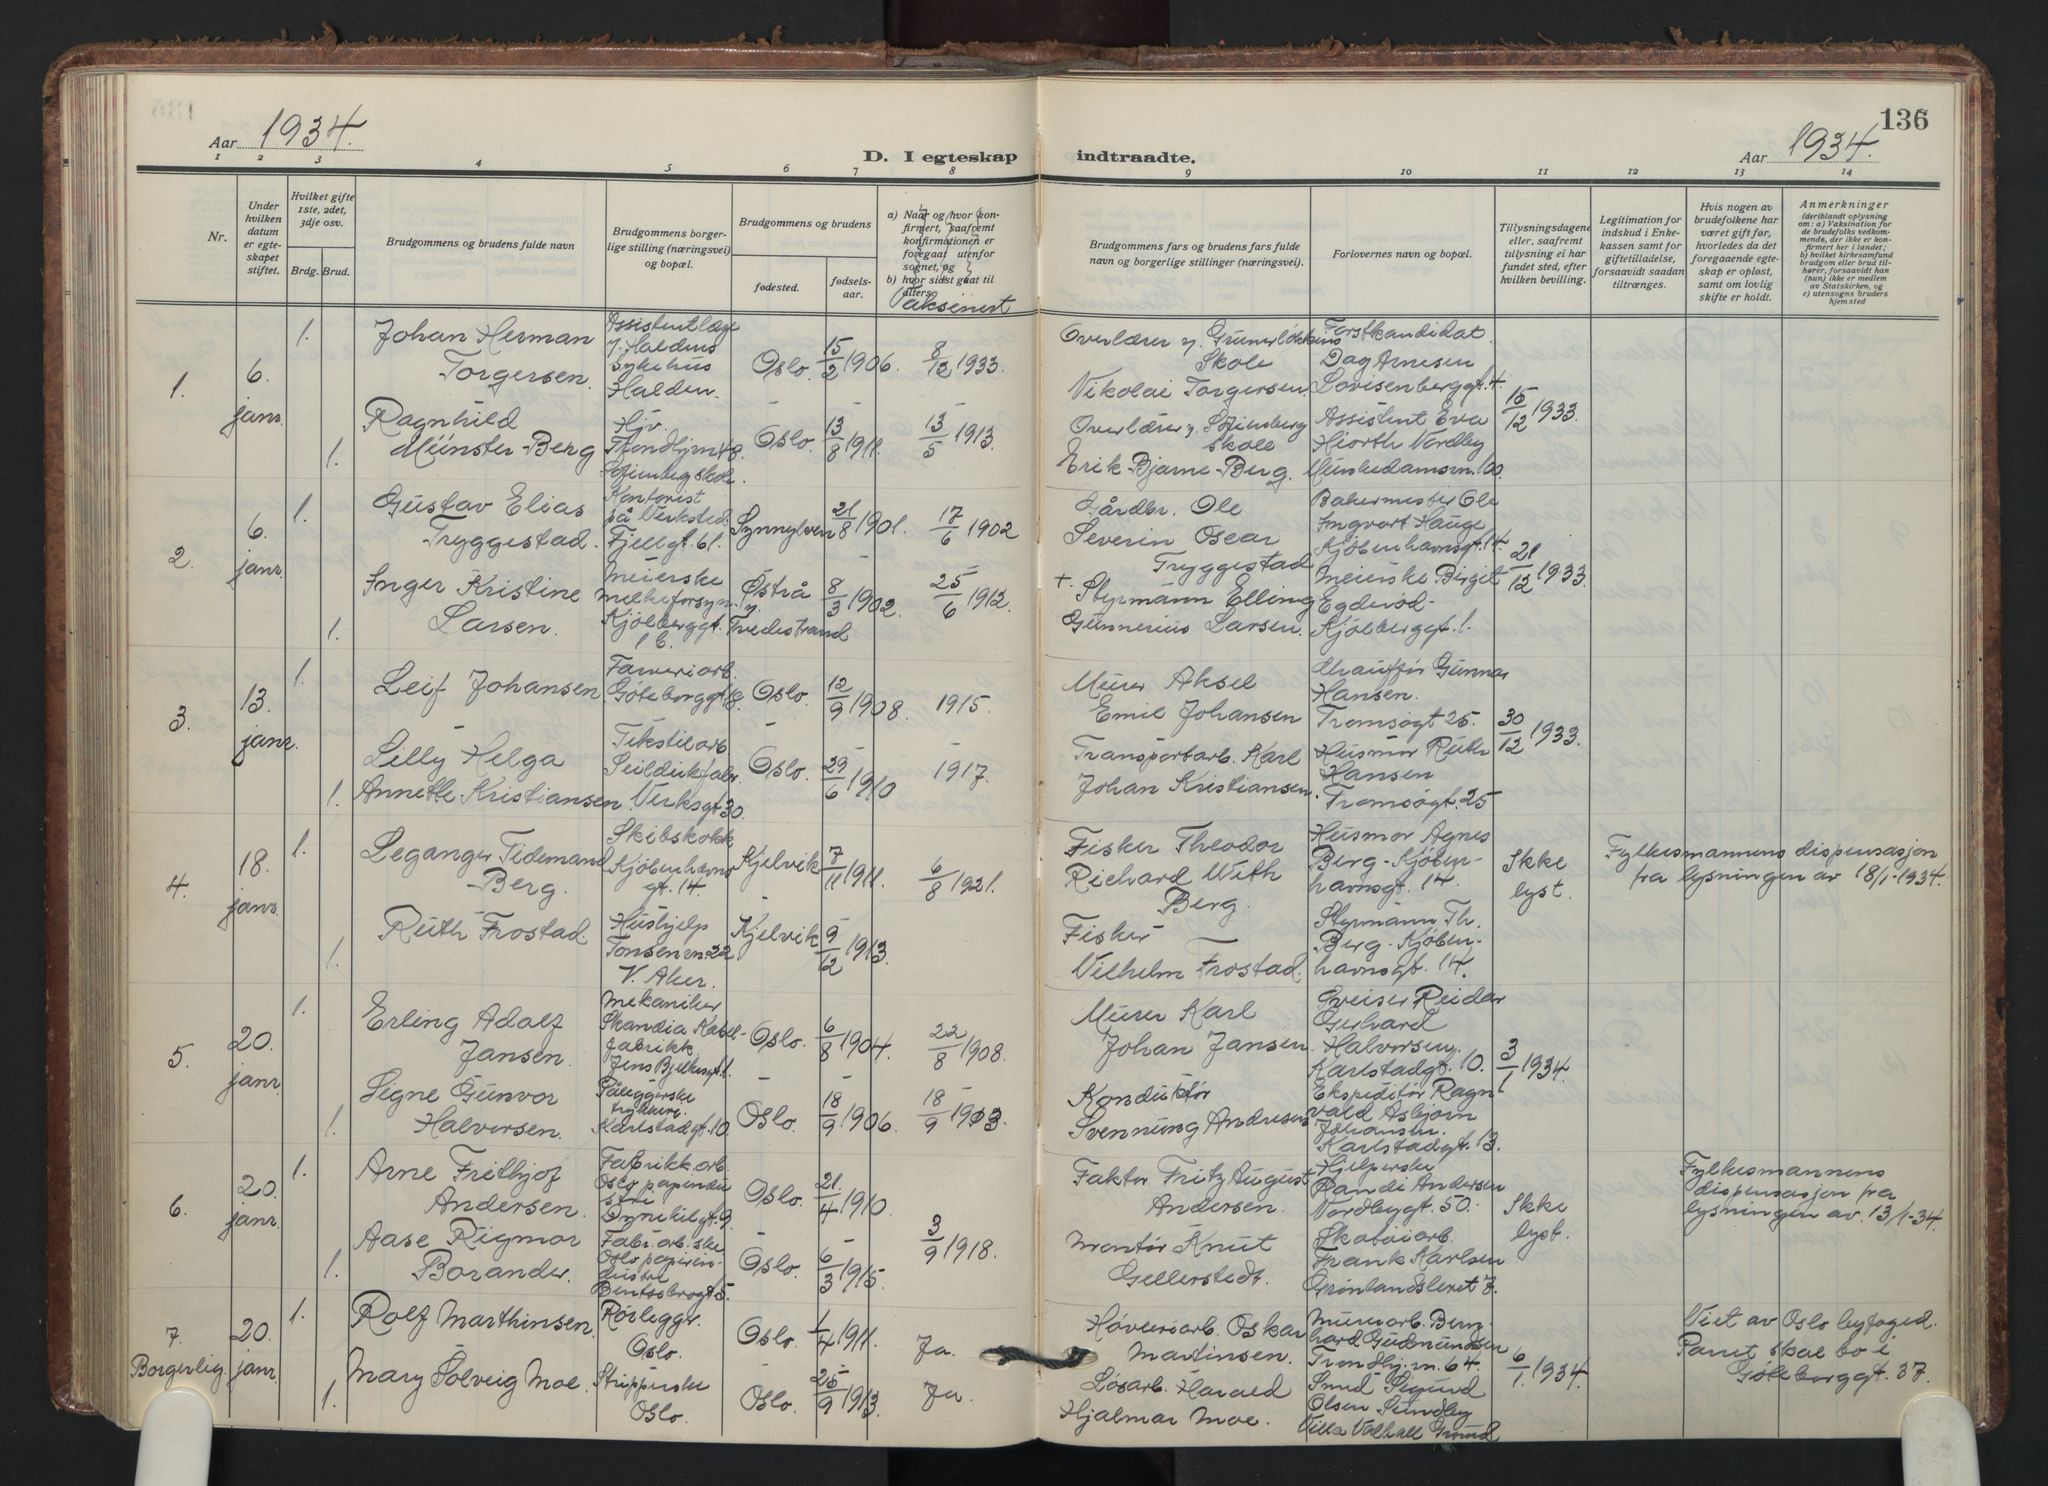 136
Aar 1934.
D. I egteskap indtraadte.
Aar 1934.
1 2 3 4 5 6 7 8 9 10 11 12 13 14
Nr.
Under hvilken datum er egteskapet stiftet.
Hvilket gifte 1ste, 2det, 3dje osv.
Brdg. Brud.
Brudgommens og brudens fulde navn
Brudgommens borgerlige stilling (næringsvei) og bopæl.
Brudgommens og brudens
fødested.
fødselsaar.
a) Naar og hvor konfirmert, saafremt konfirmationen er foregaat utenfor sognet, og
b) hvor sidst gaat til alters.
Vaksinert
Brudgommens fars og brudens fars fulde navn og borgerlige stillinger (næringsvei).
Forlovernes navn og bopæl.
Tillysningsdagene eller, saafremt tillysning ei har fundet sted, efter hvilken bevilling.
Legitimation for indskud i Enkekassen samt for giftetilladelse, forsaavidt saadan tiltrænges.
Hvis nogen av brudefolkene har været gift før, hvorledes da det foregaaende egteskap er opløst, samt om lovlig skifte er holdt.
Anmerkninger
(deriblandt oplysning om: a) Vaksination for de brudefolks vedkommende, der ikke er konfirmert her i landet; b) hvilket kirkesamfund brudgom eller brud tilhører, forsaavidt han (hun) ikke er medlem av Statskirken, og c) utensogns bruders hjemsted
1. 6. janr. 1.
Johan Herman Torgersen.
Assistentlæge v. Haldens Sykehus Halden.
Oslo. 15/2 1906. 8/12 1933.
Overlærer v. Grünerløkkens Skole Nikolai Torgersen.
Forstkandidat Dag Arnesen Lovisenberggt. 4.
15/12 1933.
1. Ragnhild Münster-Berg
Hjv. Trondhjmv. 48. Sofienbergskole.
Oslo. 13/8 1911. 13/5 1913
Overlærer v. Sofienberg Skole Erik Bjarne Berg.
Assistent Eva Hiorth Nordby Munkedamsvn. 100
2. 6. janr. 1.
Gustav Elias Tryggestad.
Kontorist på Verksted Fjellgt. 61.
Synnylven 21/8 1901. 17/6 1902
Gårdbr. Ole Severin Oscar Tryggestad
Bakermester Ole Ingvart Hauge Kjøbenhavnsgt. 14.
21/12 1933.
1. Inger Kristine Larsen.
Meierske melkeforsyn. Kjølberggt. 1 b.
Østrå v. Tvedestrand 8/3 1902. 25/6 1912.
+ Styrmann Elling Gunnerius Larsen.
Meierske Birgit Egderød Kjølberggt. 1.
3. 13. janr. 1.
Leif Johansen
Farveriarb. Göteborggt. 18.
Oslo. 12/9 1908. 1915.
Murer Aksel Emil Johansen
Chauffør Gunnar Hansen. Tromsøgt 25.
30/12 1933.
1. Lilly Helga Annette Kristiansen
Tekstilarb. Seildukfabr. Verksgt. 30.
Oslo. 29/6 1910 1917.
Transportarb. Karl Johan Kristiansen.
Husmor Ruth Hansen Tromsøgt. 25
4. 18. janr. 1.
Leganger Tidemand Berg.
Skibskokk Kjøbenhavns gt. 14
Kjelvik 7/11 1911. 6/8 1921.
Fisker Theodor Richard With Berg.
Husmor Agnes Berg - Kjøbenhavnsgt. 14.
Ikke lyst.
Fylkesmannens dispensasjon fra lysningen av 18/1-1934.
1. Ruth Frostad.
Hushjelp Tonsenvn 22 V. Aker.
Kjelvik 9/12 1913.
Fisker Vilhelm Frostad.
Styrmann Th. Berg - Kjøbenhavnsgt. 14.
5. 20. janr. 1.
Erling Adolf Jansen.
Mekaniker Skandia Kabelfabrikk Jens Bjelkesgt. 1.
Oslo. 6/8 1904. 22/8 1908.
Murer Karl Johan Jansen
Sveiser Reidar Gerhard Halvorsen. Karlstadgt. 10.
3/1 1934.
1. Signe Gunvor Halvorsen.
Påleggerske trykkeri. Karlstadgt. 10
Oslo. 18/9 1906. 18/9 1913.
Konduktør Svennung Andresen
Ekspeditør Ragnvald Asbjørn Johansen. Karlstadgt. 13.
6. 20. janr. 1.
Arne Frithjof Andersen.
Fabrikkarb. Oslo papirindustri Dynekilgt. 9.
Oslo. 21/4 1910.
Faktor Fritz August Andersen.
Hjelperske Randi Andersen Nordbygt. 50.
Ikke lyst.
Fylkesmannens dispensasjon fra lysningen av 13/1-34.
1. Aase Rigmor Borander.
Fabr. arb. ske Oslo papirindustri Bentsebrogt 5.
Oslo. 6/3 1915. 3/9 1918.
Montør Knut Gellerstedt.
Skotøiarb. Frank Karlsen Grønlandsleret 7.
7. Borgerlig. 20. janr. 1.
Rolf Marthinsen.
Rørlegger. Oslo.
Oslo. 1/4 1911. Ja.
Høveriarb. Oskar Martinsen.
Murerarb. Bernhard Gudmundsen Trondhj.vn. 64.
6/1 1934.
Viet av Oslo byfoged. Parret skal bo i Göteborggt. 37.
1. Mary Solveig Moe.
Stripperske Oslo.
Oslo. 25/9 1913. Ja.
Løsarb. Harald Hjalmar Moe.
Smed Sigurd Olsen Sundby Villa Valhall Grorud